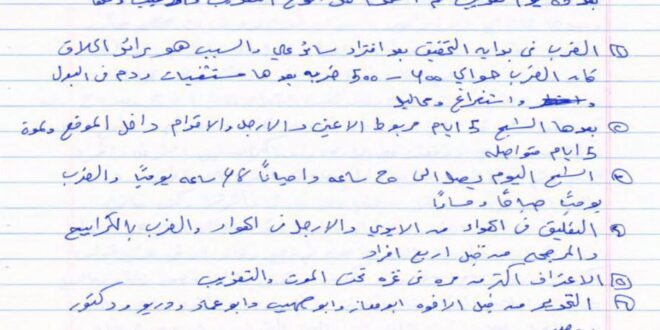 ① الضرب فى بداية التحقيق بعد افتراد سائر علي والسبب هو برائز الحلاق
كان الضرب حوالي ٤٠٠ – ٥٠٠ ضربه بعدها مستشفيات ودم فى البول
واستفراغ ومحاليل
② بعدها الشبح 5 ايام مربوط الاعين والارجل والاقدام داخل الموقع ولمدة
5 ايام متواصله
③ الشبح اليوم يصل الى ساعه واحياناً ٤٨ ساعه يومياً والضرب
يومياً صباحاً ومساءاً
④ التعليق فى الهواء من الايدي والارجل فى الهواء والضرب بالكرابيج
والمرجحه من قبل اربع افراد
⑤ الاعتراف اكثر من مره فى غزه تحت الموت والتعذيب
⑥ من قبل الاخوه ابومعاز وابوصهيب وابوعماد ودكتور